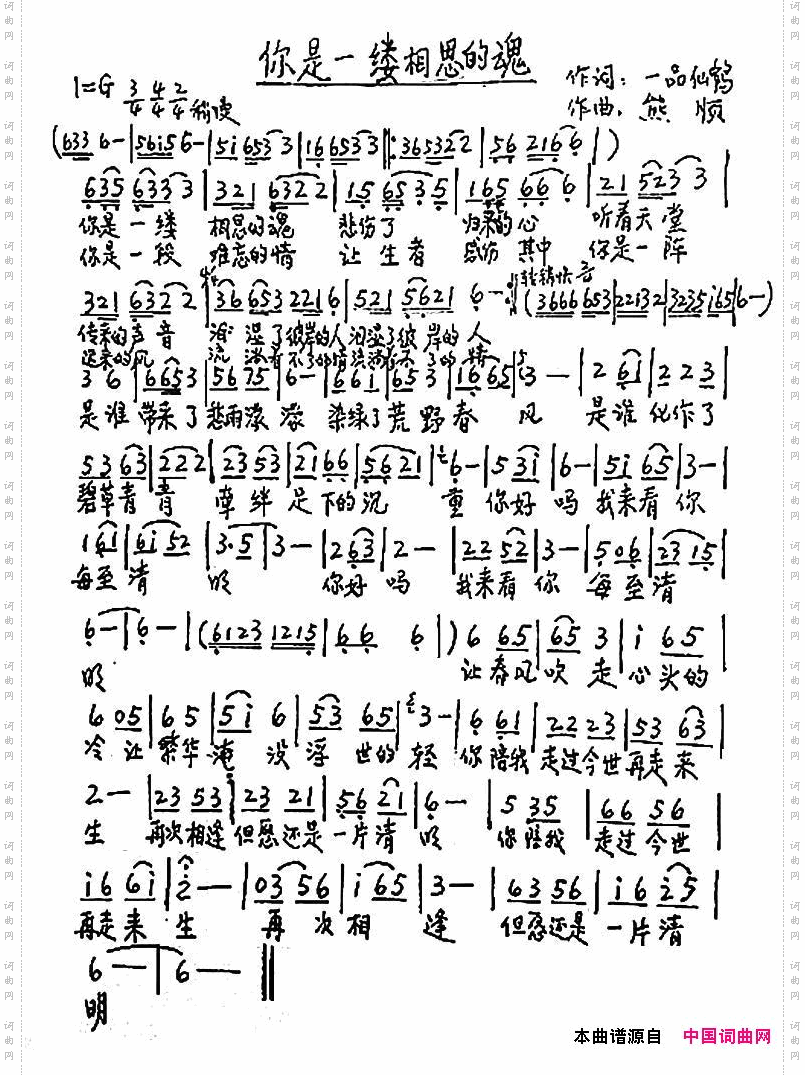 你是一缕相思的魂
1=G 3/4 4/4 2/4 稍慢
作词：一品仙鹤
作曲：熊顺
(633 6- | 56i5 6- | 5i 653 3 | 16 653 3 |: 36532 2 | 56 216 6 | )
635 633 3 | 321 632 2 | 15 653 5 | 165 66 6 | 21 523 3 |
你是一缕 相思的魂 悲伤了 归来的心 听着天堂
你是一段 难忘的情 让生者 感伤其中 你是一阵
321 632 2 | 36 653 221 6 | 521 5621 6- :| (3666 653 | 22132 | 3235 i65 | 6-)
传来的声音 泪湿了彼岸的人 泪湿了彼岸的人
迟来的风
3 6 | 665 3 | 56 75 | 6- | 66i | 653 3 | 16 65 | 3- | 2 6i | 22 3 |
是谁带来了悲雨濛濛 染绿了荒野春风 是谁化作了
53 63 | 222 | 23 53 | 21 66 | 56 21 | 6- | 5 3i | 6- | 5i 65 | 3- |
碧草青青 牵绊足下的沉重 你好吗 我来看你
1 61 | 6i 52 | 3·5 | 3- | 2 63 | 2- | 22 52 | 3- | 5 06 | 23 15 |
每至清明 你好吗 我来看你 每至清
6- | 6- | (6123 1215 | 66 6 | ) 6 65 | 65 3 | i 65 |
明 让春风吹走心头的
6 05 | 6 5 | 5i 6 | 53 65 | 3- | 6 61 | 22 23 | 53 63 |
冷 让繁华淹没浮世的轻 你陪我走过今世再走来
2- | 23 53 | 23 21 | 56 21 | 6- | 5 35 | 66 56 |
生 再次相逢但愿还是一片清明 你陪我 走过今世
i6 6i | 2- | 03 56 | i 65 | 3- | 63 56 | i6 i5 |
再走来生 再次相逢 但愿还是一片清
6- | 6- ||
明
本曲谱源自 中国词曲网
词曲网